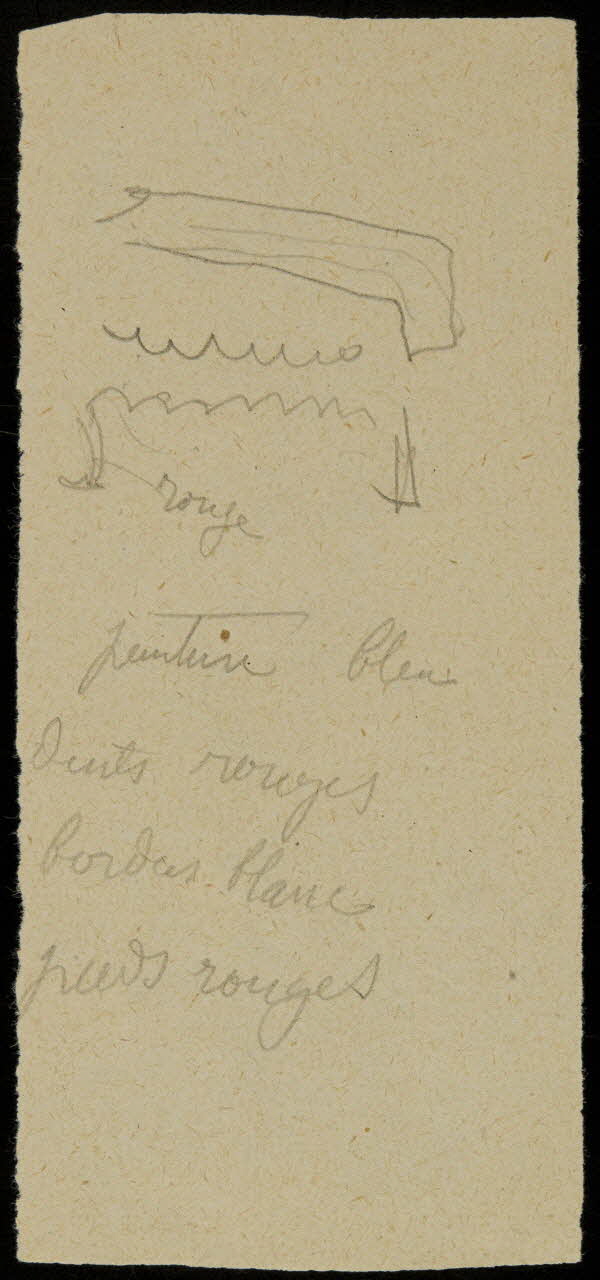 rouge
peinture bleu
Dents rouges
bordees blanc
pieds rouges